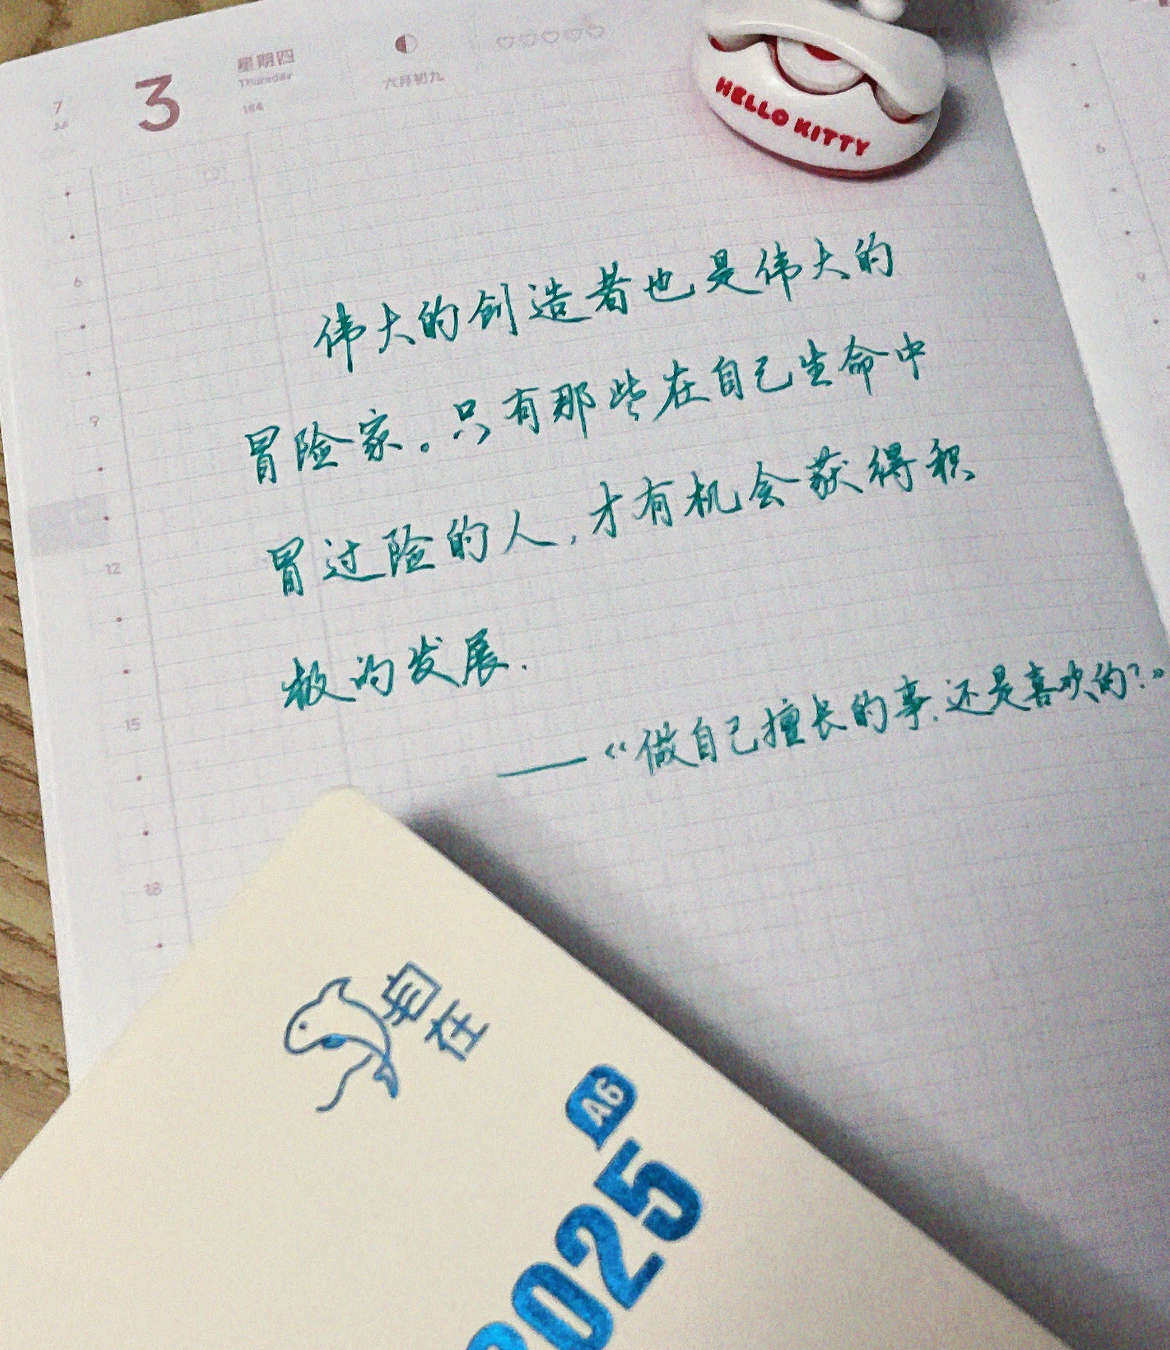 7
Jul
3
星期四
Thursday
184
六月初九
HELLO KITTY
6
9
12
15
18
6
9
伟大的创造者也是伟大的
冒险家。只有那些在自己生命中
冒过险的人，才有机会获得积
极的发展.
——《做自己擅长的事,还是喜欢的?》
自在
A6
2025